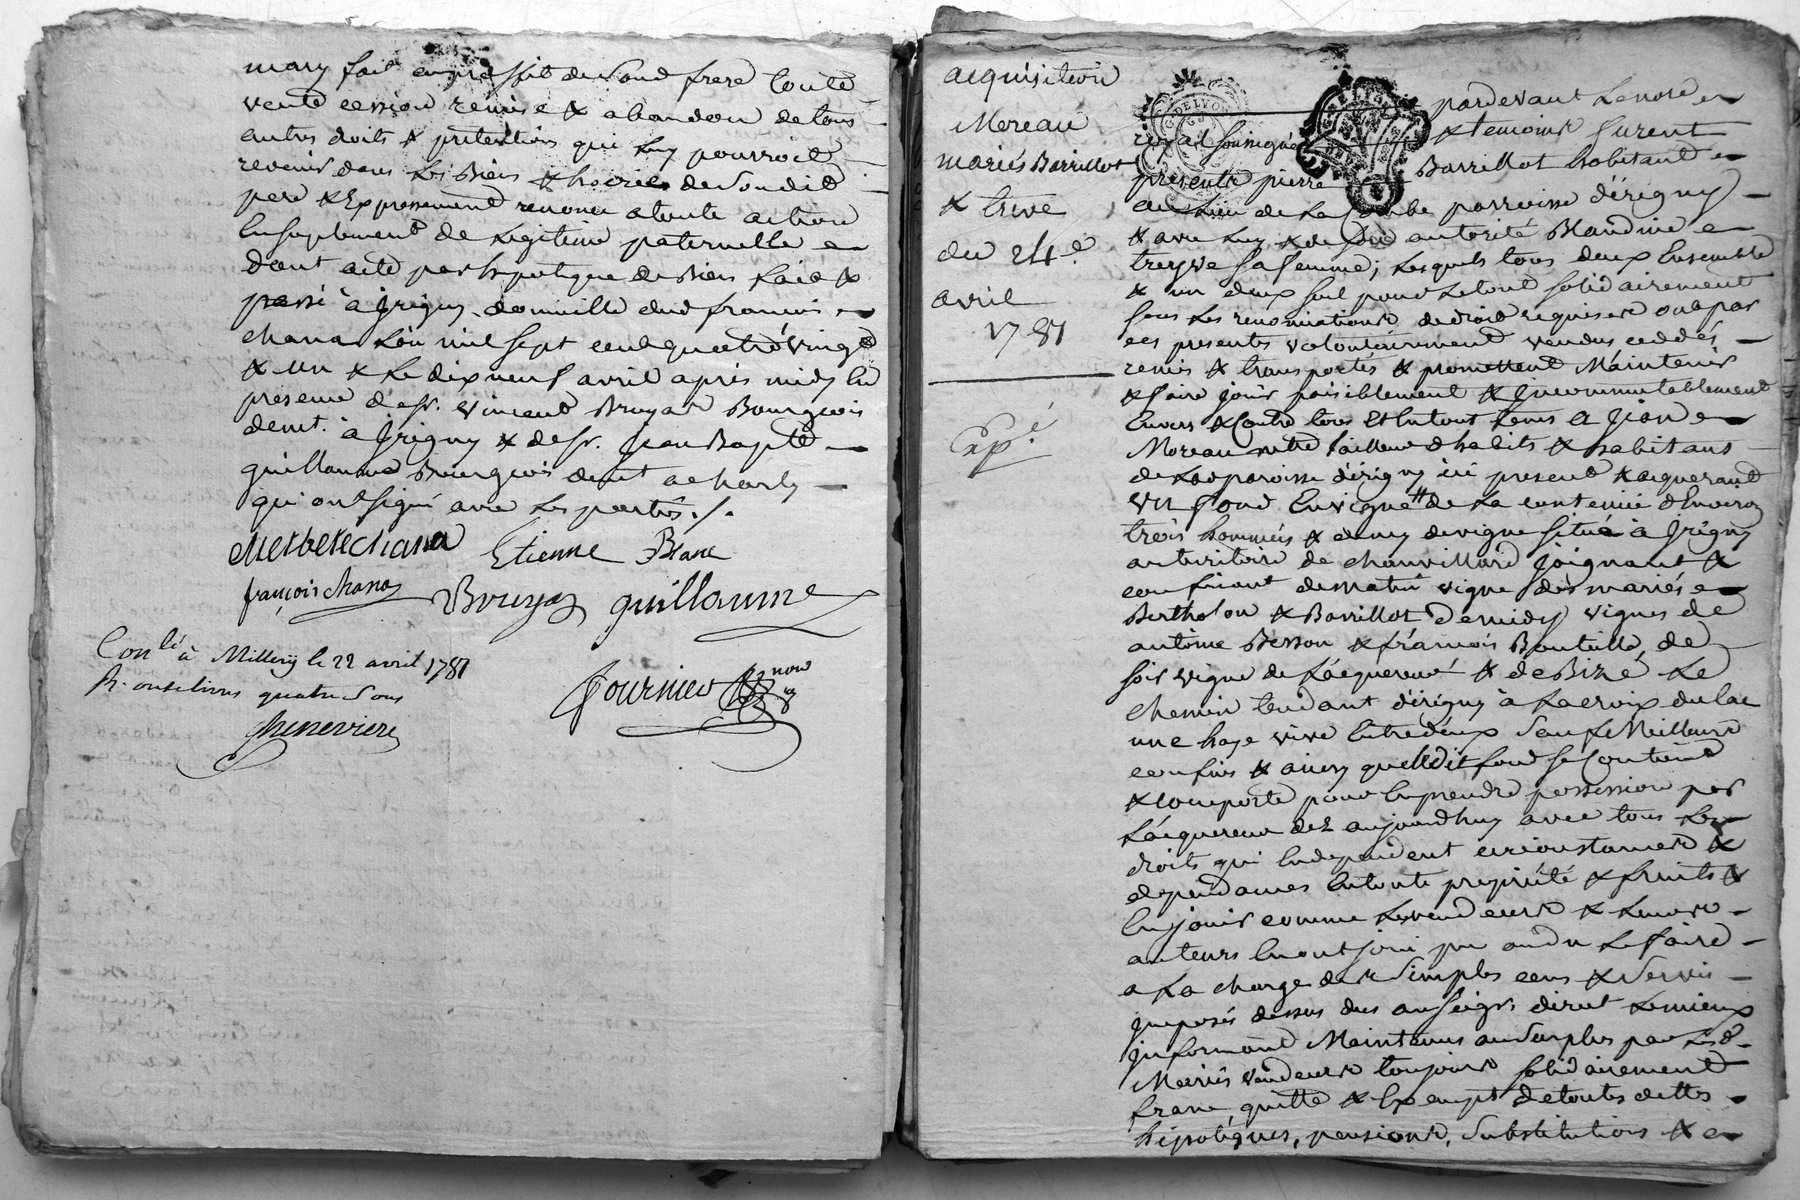 mary fait au proffit de sond frere toute
vente cession remise & abandon de tous
autres droits & pretentions qui luy pourroit
revenir dans les biens & hoiries de soudit
pere & Expressement renoncé a toute action
En suplement de legitime paternelle
dont acte par hypoteque de biens fait &
passé à Jrigny domicille dud francois
chana L'an mil sept cent quatre vingt
& un & le dix neuf avril après midy En
presence de sr. vincent Bruyas Bourgeois
demt. à Jrigny & de sr. Jean Bapte
guillaume Bourgeois demt a charly
qui ont signé avec les parties ./.
Etienne Blanc
françois chana Bruyas guillaume
Conlé à Millery le 22 avril 1781
R. onze livres quatre sous
Cheneviere
Fournier nore
acquisition
Moreau
mariés Barrillot
& treve
du 24e
avril
1781
Expé
G. DE LYON
pardevant Le nore
royal soussigné & temoins furent
presents pierre Barrillot habitant
au Lieu de La Combe parroisse d'érigny
& avec luy & de son autorité Blandine
treyve sa femme; Lesquels tous deux Ensemble
& un deux seul pour Le tout solidairement
sous Les renonciations de droit requises ont par
ces presentes volontairement vendus ceddés
remis & transportés & promettent Maintenir
& faire jouir paisiblement & Jncommutablement
Envers & Contre tous Et En tout tems a Jean
Moreau metre tailleur d'habits & habitant
de Lad paroisse d'érigny ici present & acquerant
un fond En vigne de La contenüe d'Environ
trois hommées & demy de vigne situé à Jrigny
au teritoire de chanvillard Joignant &
confinant de matin vigne des mariés
Bertholon & Barrillot De midy vignes de
antoine Besson & francois Bouteille, de
soir vigne de L'acquereur & de Bize Le
chemin tendant d'érigny à La croix du lac
une haye vive Entredeux sauf Meilleurs
confins & ainsy que Ledit fond se Contient
& comporte pour En prendre possession par
L'acquereur dez aujourdhuy avec tous Les
droits qui En dependent circonstances &
dependances En toute proprieté & fruits &
En jouir comme Les vendeurs & Leurs
auteurs En ont joui pu ou du Le faire
a La charge des simples cens & servis
Jmposés dessus dus au seigr. direct Le mieux
Jnformant Maintenus au Surplus par Lesd
Mariés vendeurs toujours solidairement
franc, quitte & Exempt de toutes dettes
hipotèques, pensions, substitutions &